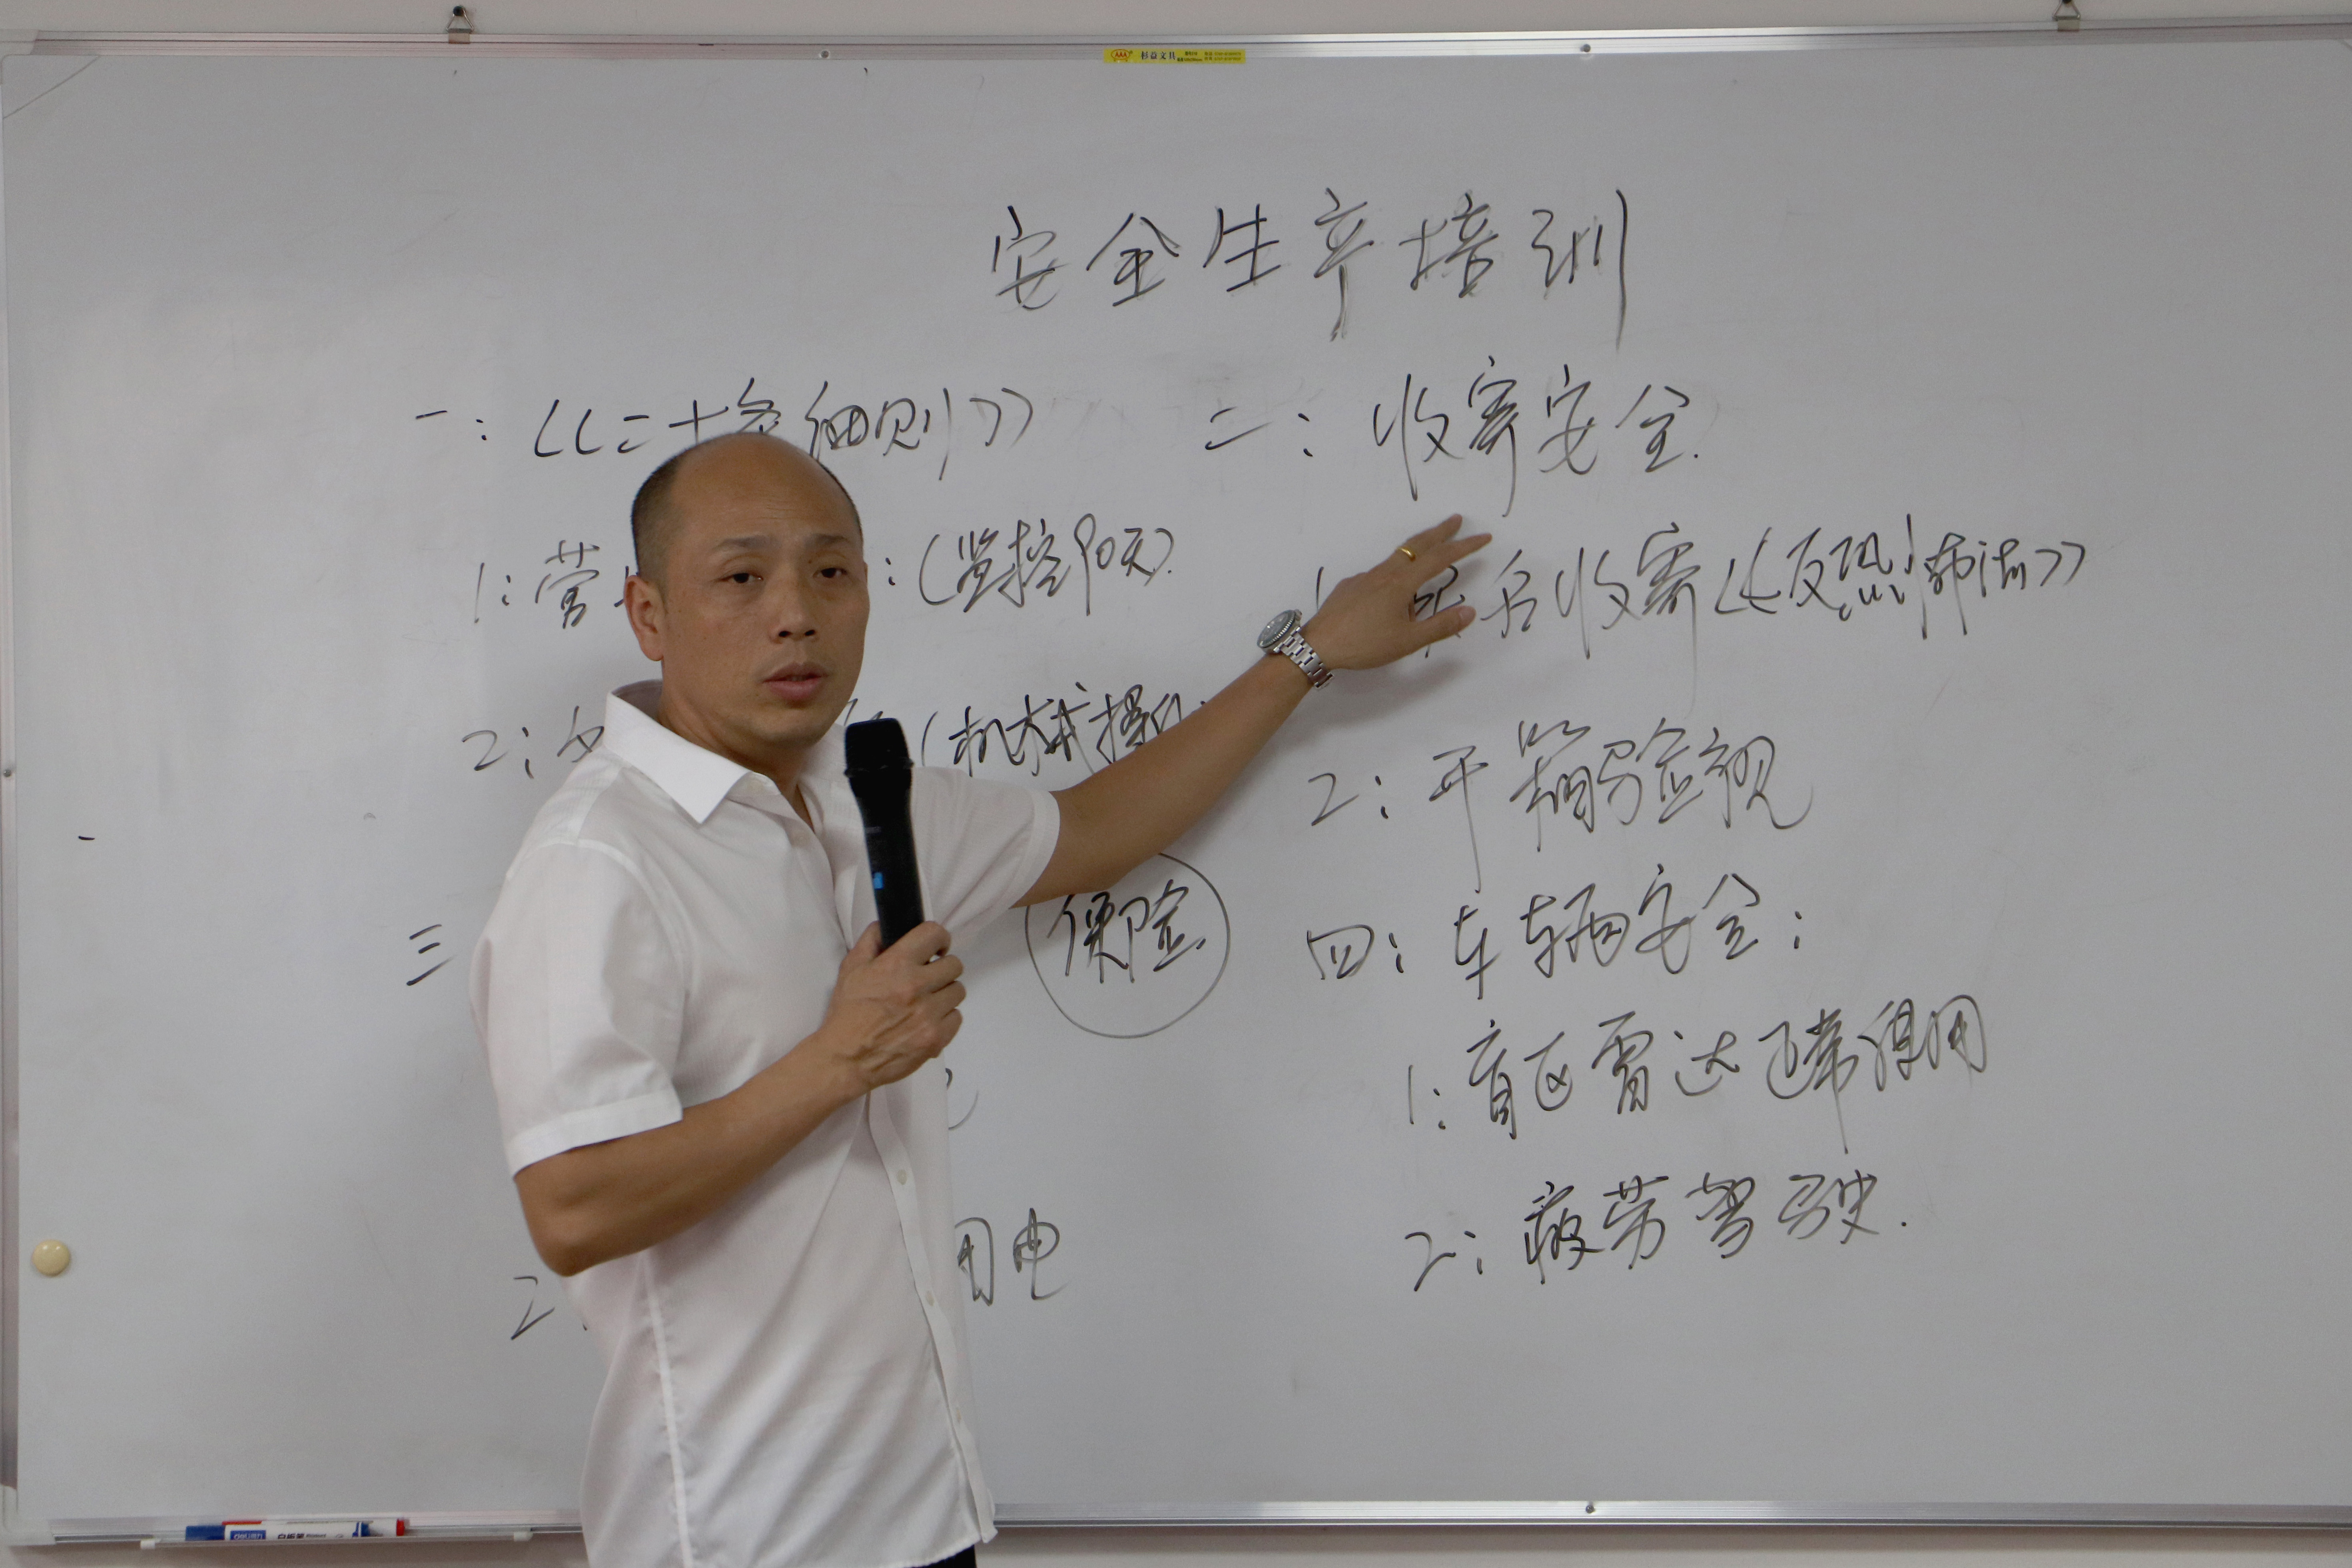 杉益文具
安全生产培训
一:《二十条细则》
1:营 :(监控90天)
2: (机械操作
三
保险
2 用电
二:收寄安全.
名收寄《反恐怖法》
2:开箱验视
四:车辆安全:
1:盲区雷达 用
2:疲劳驾驶.
deli